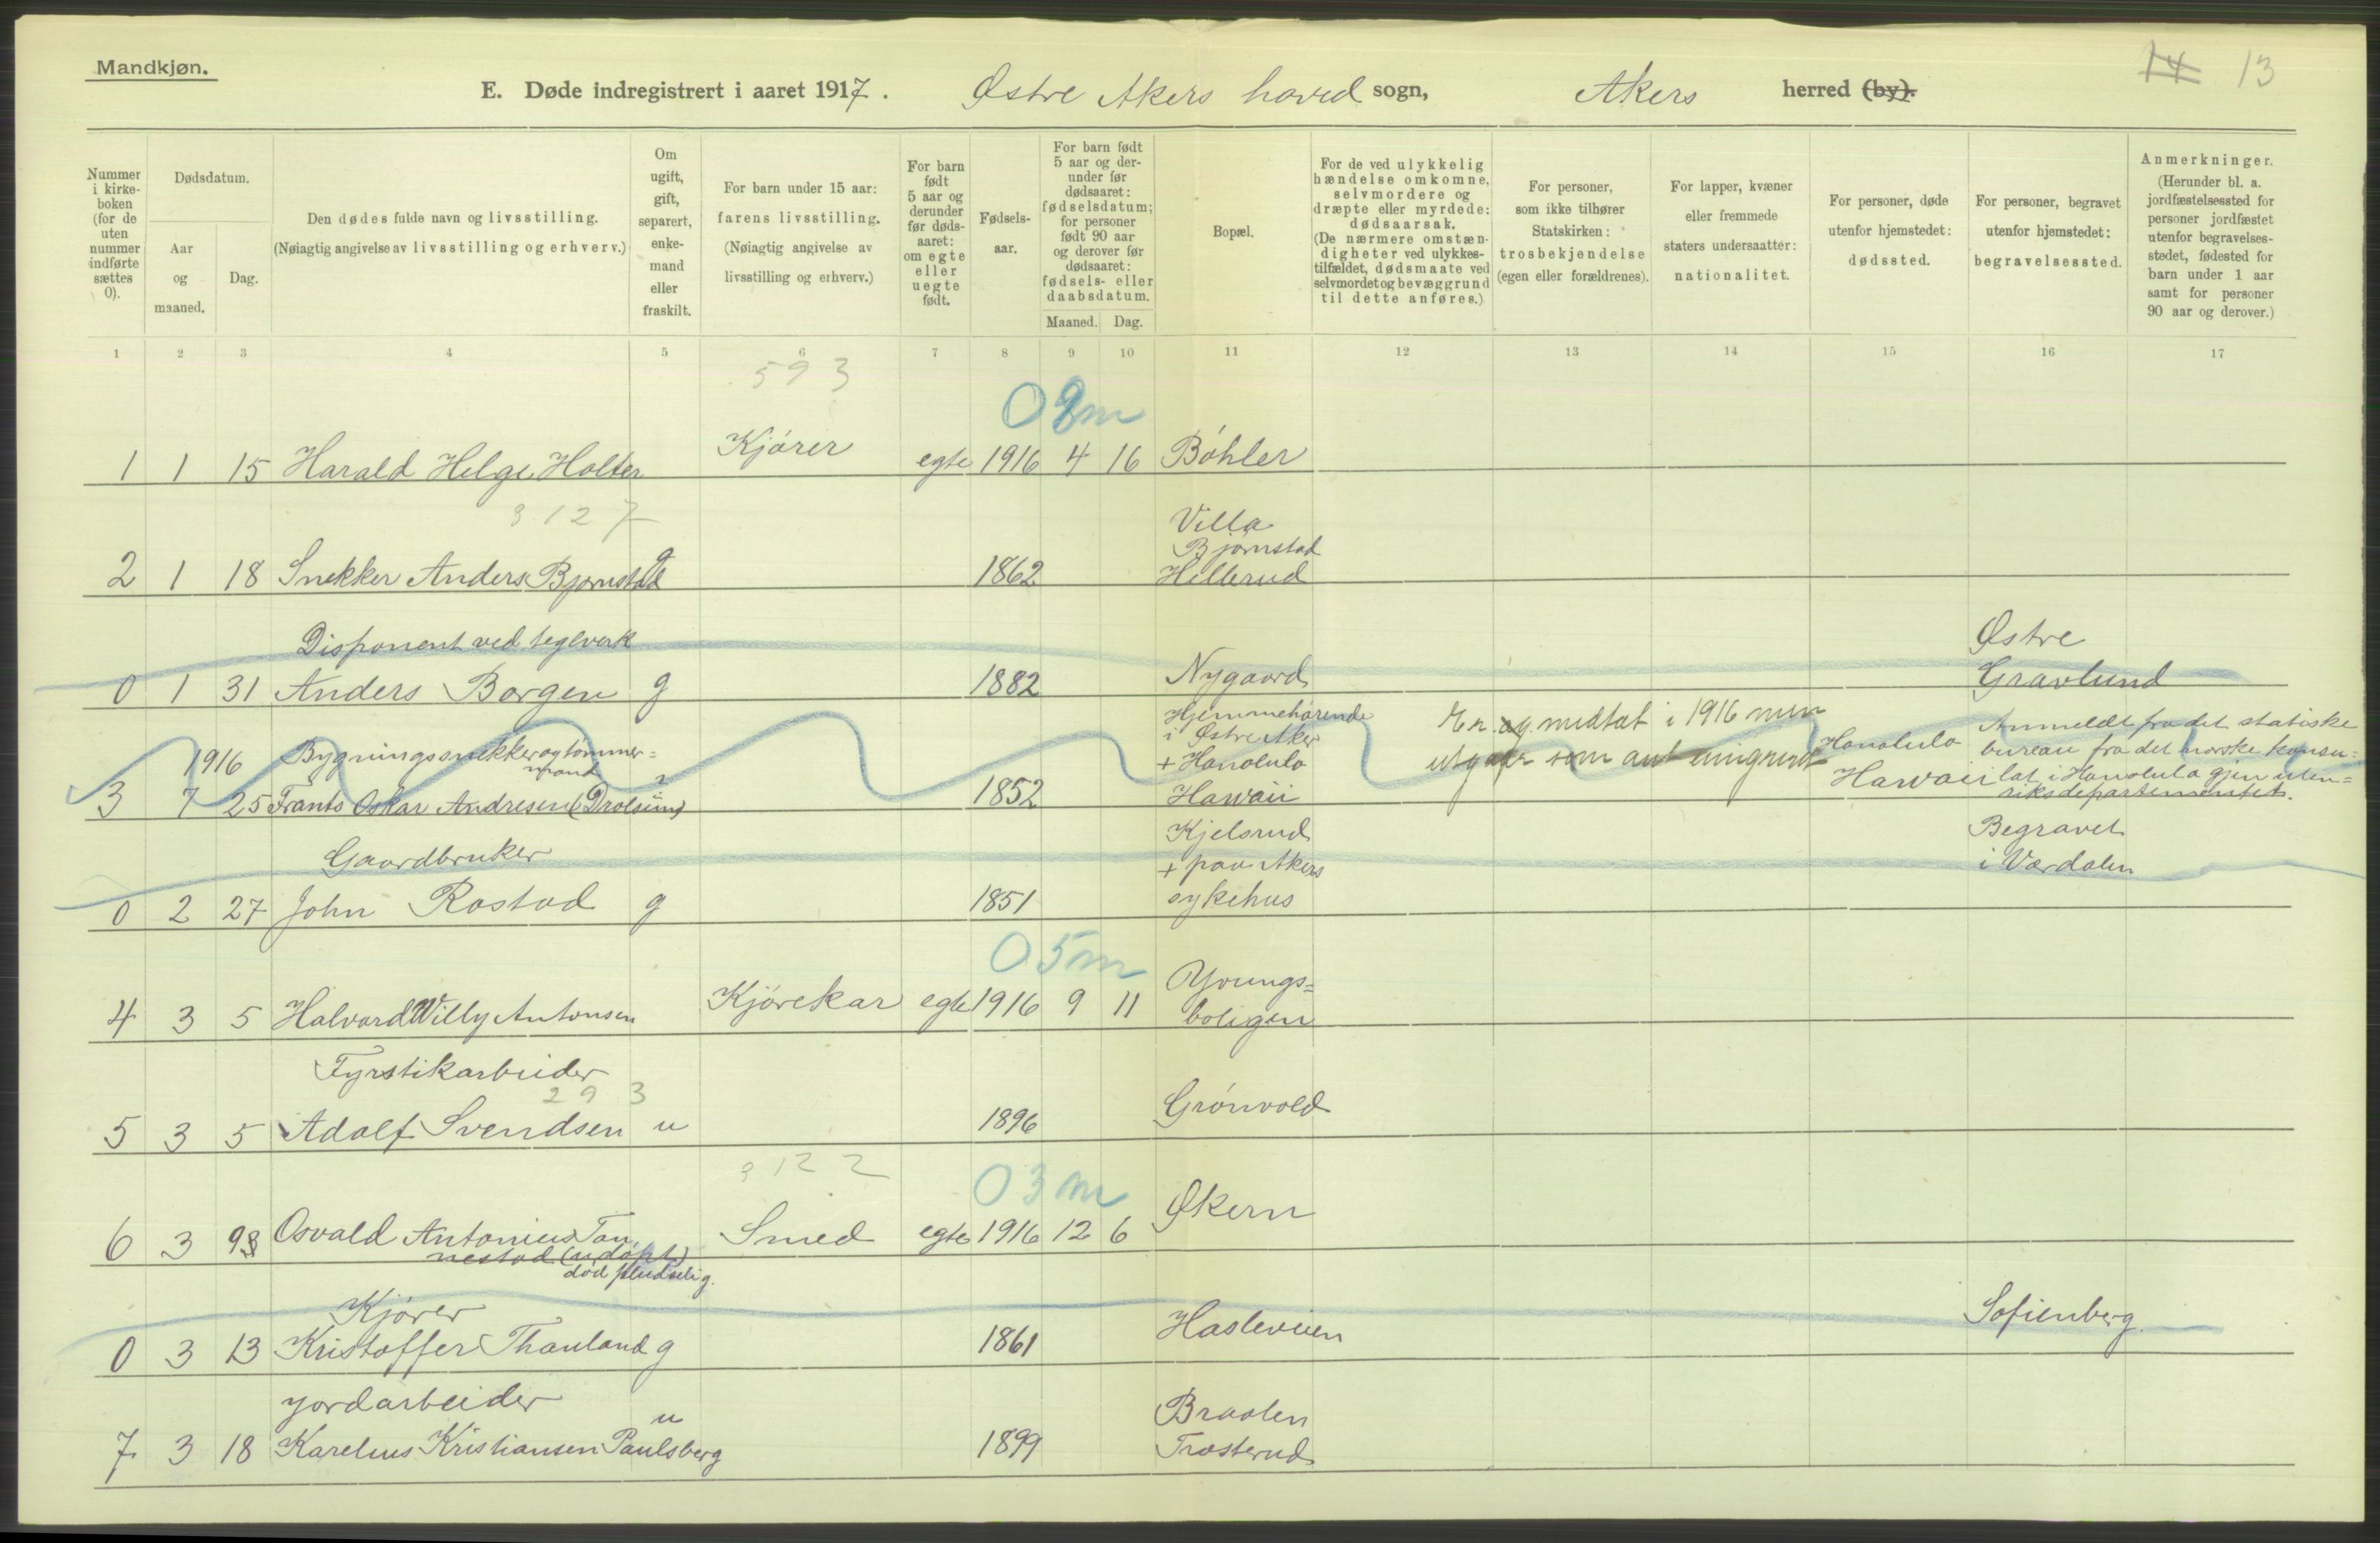 Mandkjøn.
14 13
E. Døde indregistrert i aaret 1917. Østre Akers hoved sogn, Akers herred (by).
Nummer i kirke-boken (for de uten nummer indførte sættes 0).
Dødsdatum.
Aar og maaned.
Dag.
Den dødes fulde navn og livsstilling.
(Nøiagtig angivelse av livsstilling og erhverv.)
Om ugift, gift, separert, enke-mand eller fraskilt.
For barn under 15 aar: farens livsstilling.
(Nøiagtig angivelse av livsstilling og erhverv.)
For barn født 5 aar og derunder før døds-aaret: om egte eller uegte født.
Fødsels-aar.
For barn født 5 aar og der-under før dødsaaret: fødselsdatum; for personer født 90 aar og derover før dødsaaret: fødsels- eller daabsdatum.
Maaned. Dag.
Bopæl.
For de ved ulykkelig hændelse omkomne, selvmordere og dræpte eller myrdede: dødsaarsak.
(De nærmere omstæn-digheter ved ulykkes-tilfældet, dødsmaate ved selvmordet og bevæggrund til dette anføres.)
For personer, som ikke tilhører Statskirken: trosbekjendelse (egen eller forældrenes).
For lapper, kvæner eller fremmede staters undersaatter: nationalitet.
For personer, døde utenfor hjemstedet: dødssted.
For personer, begravet utenfor hjemstedet: begravelsessted.
Anmerkninger.
(Herunder bl. a. jordfæstelsessted for personer jordfæstet utenfor begravelses-stedet, fødested for barn under 1 aar samt for personer 90 aar og derover.)
1 2 3 4 5 6 7 8 9 10 11 12 13 14 15 16 17
593
0 8m
1 1 15 Harald Helge Holter Kjører egte 1916 4 16 Bøhler
3127
Villa
Bjørnstad
2 1 18 Snekker Anders Bjørnstad g 1862 Hellerud
Disponent ved teglverk Østre
0 1 31 Anders Borgen g 1882 Nygaard Gravlund
Hjemmehørende
i Østre Aker
+ Honolulo
Hawaii
Er og medtat i 1916 men
utgaar som ant emigrert
Honolulo
Hawaii
Anmeldt fra det statiske
bureau fra det norske konsu=
lat i Honolulo gjen uten=
riksdepartementet.
1916 Bygningssnekker og tømmer=
mand
3 7 25 Frants Oskar Andresen (Drolsum) 1852
Gaardbruker
Kjelsrud
+ paa Akers
sykehus
Begravet
i Værdalen
0 2 27 John Rostad g 1851
0 5m
4 3 5 Halvard Willy Antonsen Kjørekar egte 1916 9 11 Youngs=
boligen
Fyrstikarbeider
293
5 3 5 Adolf Svendsen u 1896 Grønvold
3122
0 3m
6 3 9 Osvald Antonius Tan Smed egte 1916 12 6 Økern
nestad (udøpt)
død pludselig.
Kjører
0 3 13 Kristoffer Thauland g 1861 Hasleveien Sofienberg.
Jordarbeider
7 3 18 Karelius Kristiansen Paulsberg u 1899 Braaten
Trosterud